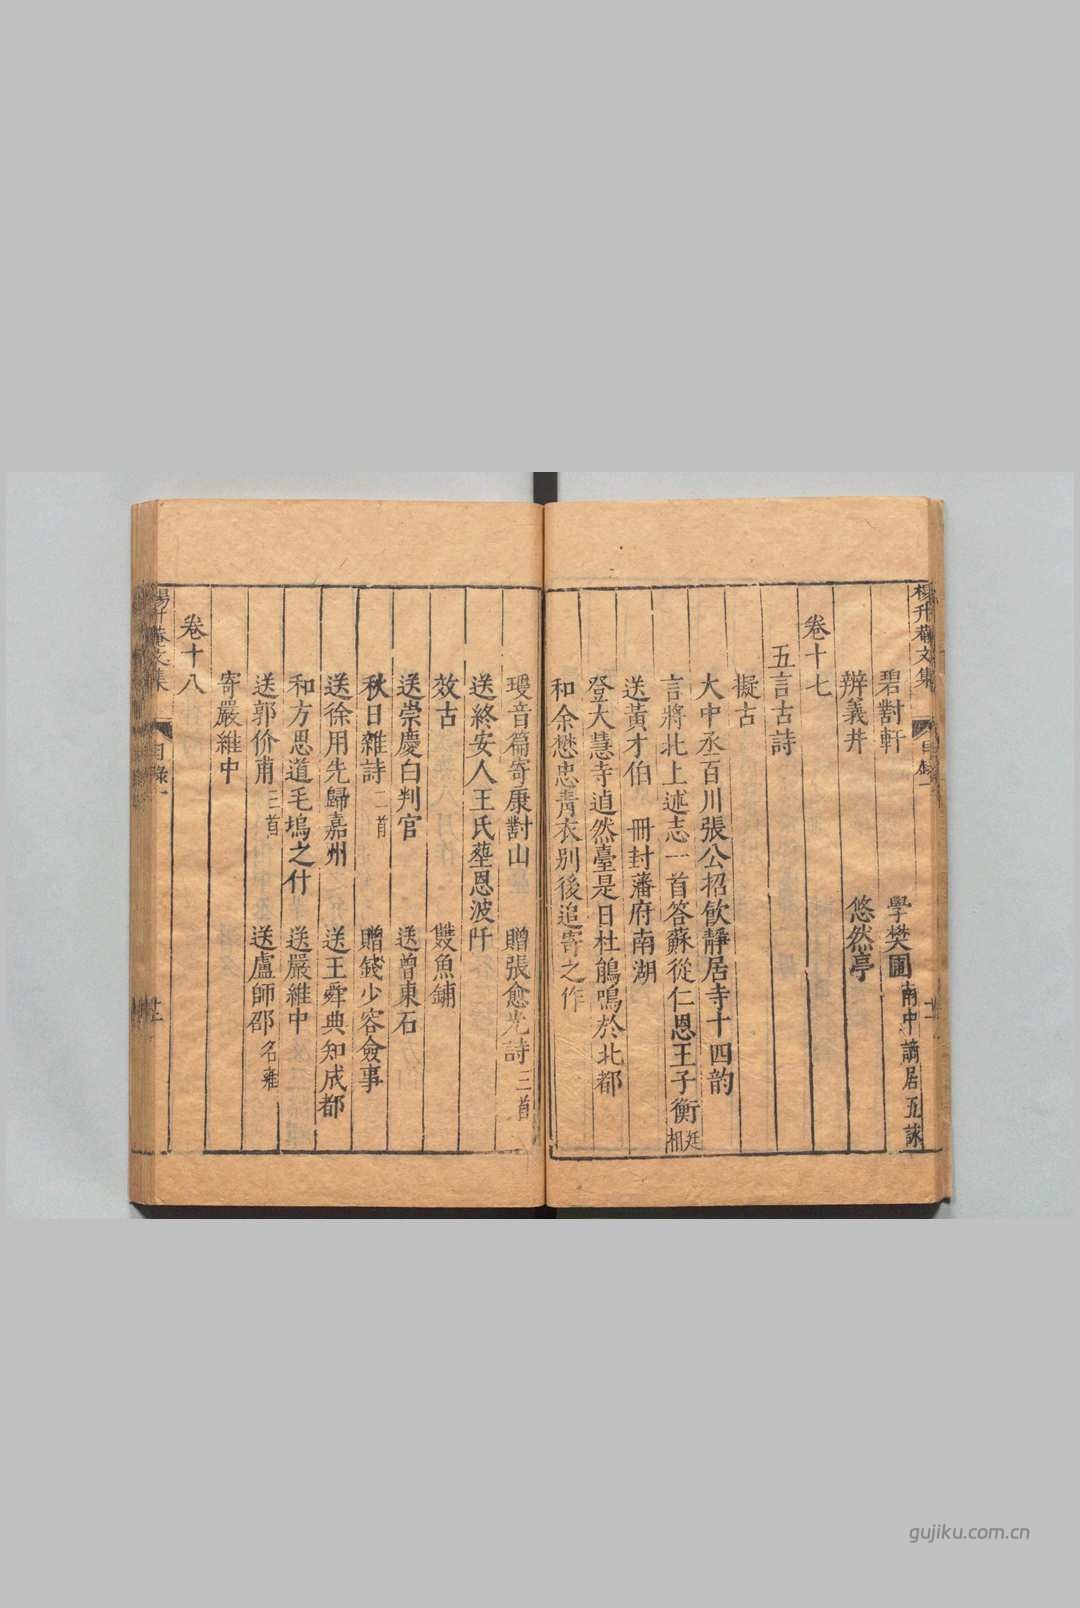 楊升菴文集 目錄一 十二
碧對軒 學樊圃 南中謫居五詠
辨義井 悠然亭
卷十七
五言古詩
擬古
大中丞百川張公招飲靜居寺十四韵
言將北上述志一首答蘇從仁恩王子衡 廷相
送黃才伯 冊封藩府南湖
登大慧寺逌然臺是日杜鵑鳴於北都
和余懋忠青衣別後追寄之作
瓊音篇寄康對山 贈張愈光詩 三首
送終安人王氏塟恩波阡
效古 雙魚鋪
送崇慶白判官 送曾東石
秋日雜詩 二首 贈錢少容僉事
送徐用先歸嘉州 送王舜典知成都
和方思道毛塢之什 送嚴維中
送郭价甫 三首 送盧師邵 名雍
寄嚴維中
卷十八
楊升菴文集 目錄一
gujiku.com.cn